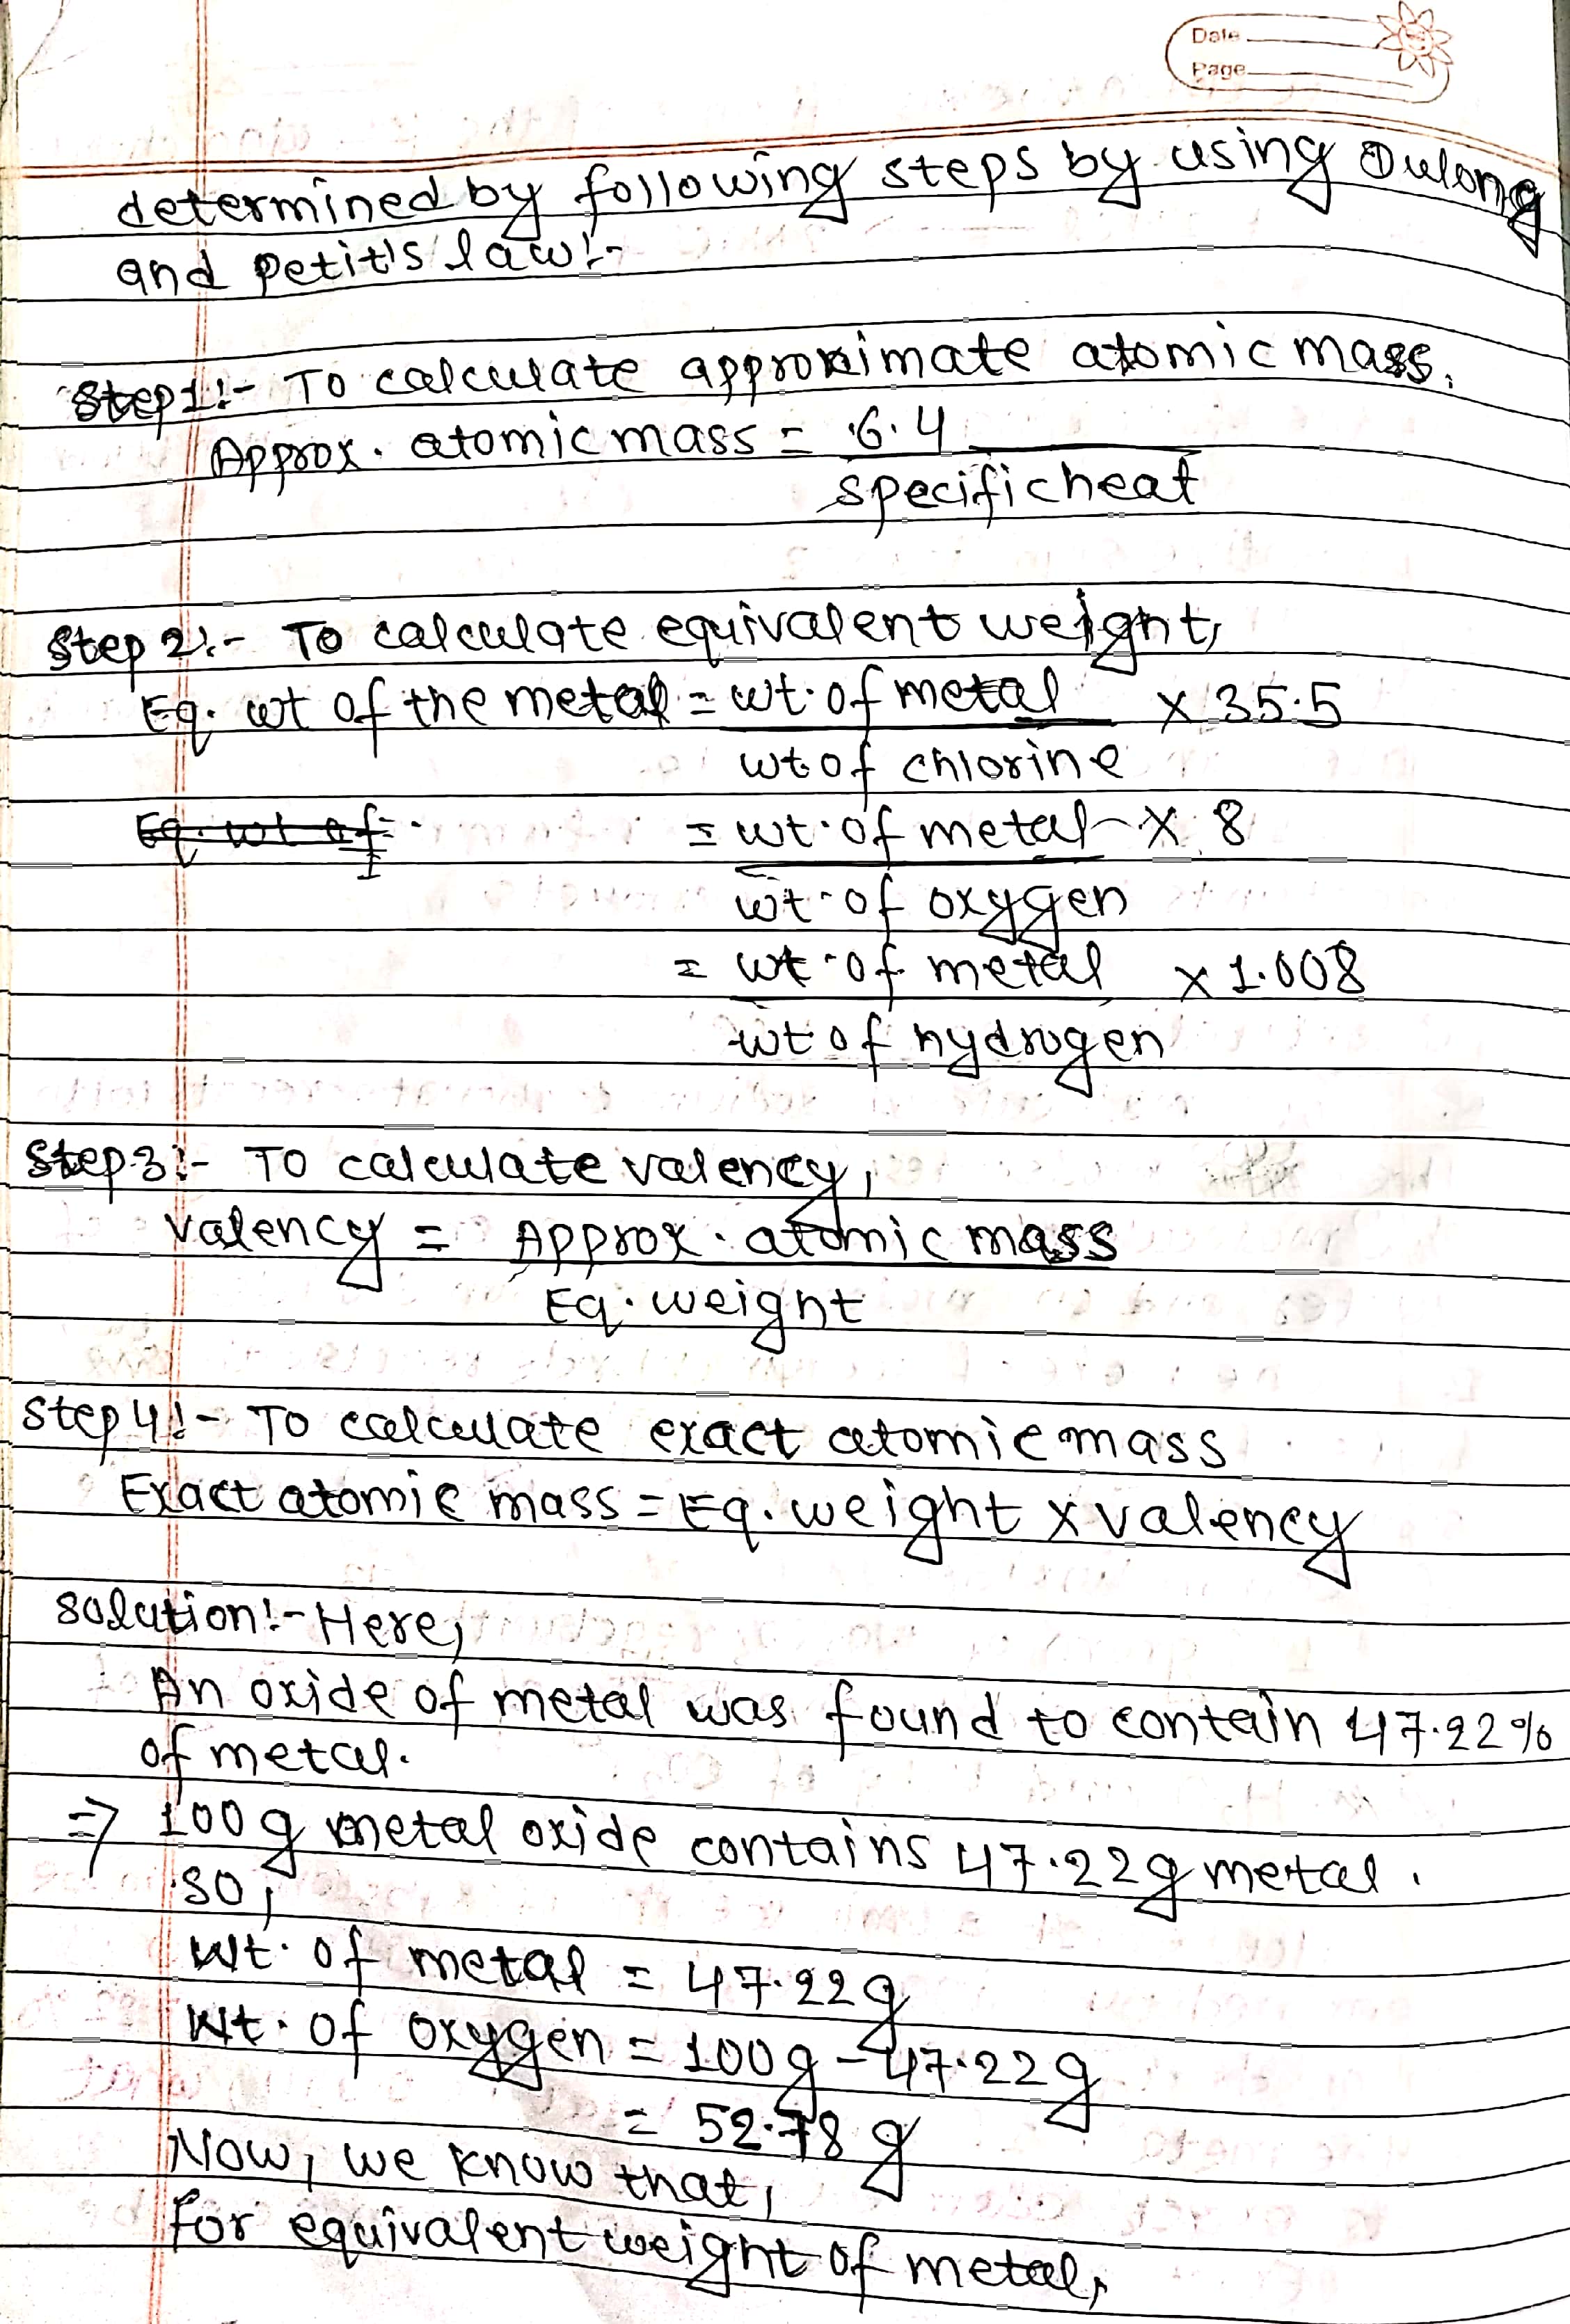 Date
Page
determined by following steps by using Dulong
and Petit's law:-
Step 1:- To calculate approximate atomic mass.
Approx. atomic mass = 6.4
specific heat
Step 2:- To calculate equivalent weight,
Eq. wt of the metal = wt. of metal x 35.5
wt of chlorine
Eq. wt of = wt. of metal x 8
wt. of oxygen
= wt. of metal x 1.008
wt of hydrogen
Step 3:- To calculate valency,
valency = Approx. atomic mass
Eq. weight
Step 4:- To calculate exact atomic mass
Exact atomic mass = Eq. weight x valency
Solution:- Here,
An oxide of metal was found to contain 47.22%
of metal.
=> 100 g metal oxide contains 47.22g metal.
So,
Wt. of metal = 47.22g
Wt. of oxygen = 100g - 47.22g
= 52.78 g
Now, we know that,
For equivalent weight of metal,